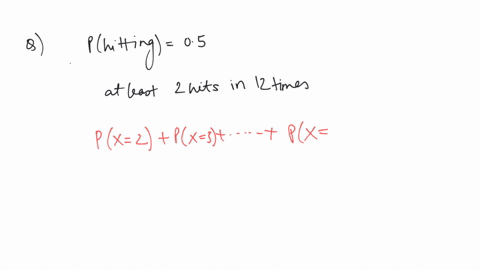 Q) P(hitting) = 0.5
at least 2 hits in 12 times
P(X=2) + P(X=3) + ...... + P(X=